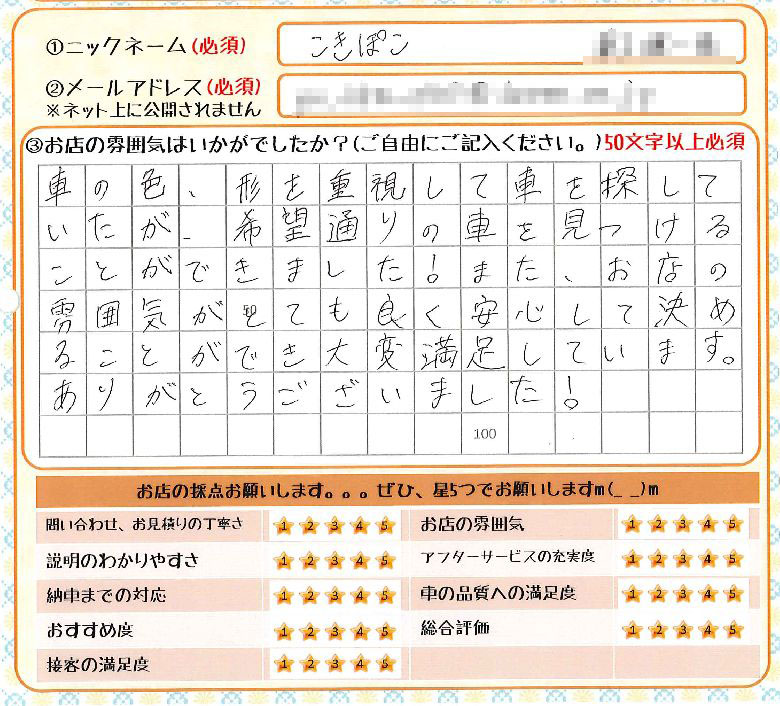 ①ニックネーム(必須) こきぽこ
②メールアドレス(必須)
※ネット上に公開されません
③お店の雰囲気はいかがでしたか?(ご自由にご記入ください。)50文字以上必須
車の色、形を重視して車を探して
いたが、希望通りの車を見つける
ことができました!また、お店の
雰囲気がとても良く安心して決め
ることができ大変満足しています。
ありがとうございました!
100
お店の採点お願いします。。。ぜひ、星5つでお願いしますm(_ _)m
問い合わせ、お見積りの丁寧さ 1 2 3 4 5 お店の雰囲気 1 2 3 4 5
説明のわかりやすさ 1 2 3 4 5 アフターサービスの充実度 1 2 3 4 5
納車までの対応 1 2 3 4 5 車の品質への満足度 1 2 3 4 5
おすすめ度 1 2 3 4 5 総合評価 1 2 3 4 5
接客の満足度 1 2 3 4 5